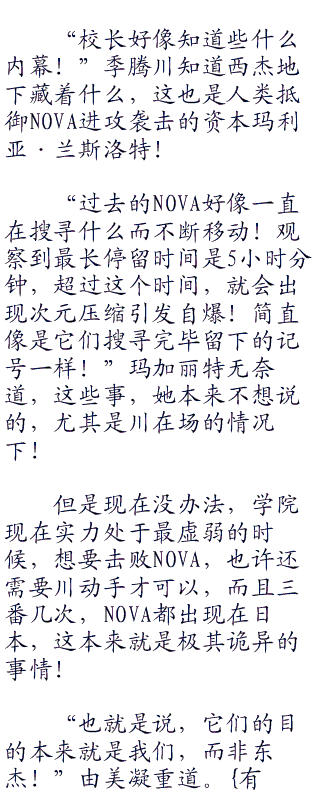 “校长好像知道些什么
内幕！”季腾川知道西杰地
下藏着什么，这也是人类抵
御NOVA进攻袭击的资本玛利
亚·兰斯洛特！
“过去的NOVA好像一直
在搜寻什么而不断移动！观
察到最长停留时间是5小时分
钟，超过这个时间，就会出
现次元压缩引发自爆！简直
像是它们搜寻完毕留下的记
号一样！”玛加丽特无奈
道，这些事，她本来不想说
的，尤其是川在场的情况
下！
但是现在没办法，学院
现在实力处于最虚弱的时
候，想要击败NOVA，也许还
需要川动手才可以，而且三
番几次，NOVA都出现在日
本，这本来就是极其诡异的
事情！
“也就是说，它们的目
的本来就是我们，而非东
杰！”由美凝重道。{有